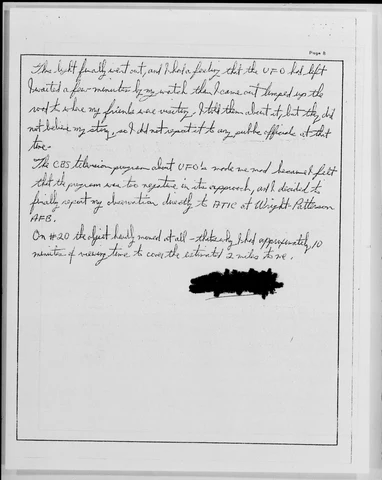 Page 5
The light finally went out, and I had a feeling that the UFO had left
I waited a few minutes by my watch then I came out limped up the
road to where my friends were visiting. I told them about it, but they did
not believe my story, so I did not repeat it to any public officials at that
time.
The CBS television program about UFO's made me mad because I felt
that the program was too negative in its approach, and I decided to
finally report my observation directly to ATIC at Wright-Patterson
AFB.
On #20 the object hardly moved at all - that's why I had approximately 10
minutes of viewing time to cover the estimated 2 miles to me.